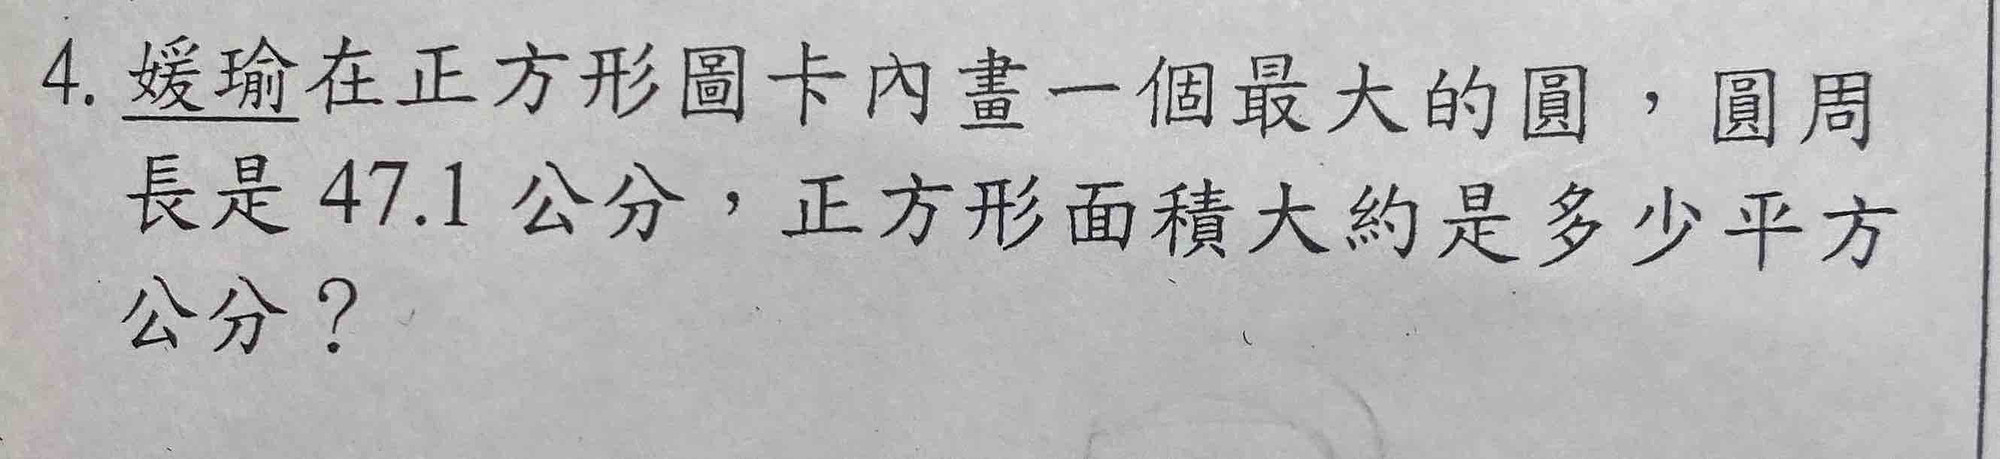 4. 媛瑜在正方形圖卡內畫一個最大的圓，圓周
長是 47.1 公分，正方形面積大約是多少平方
公分？